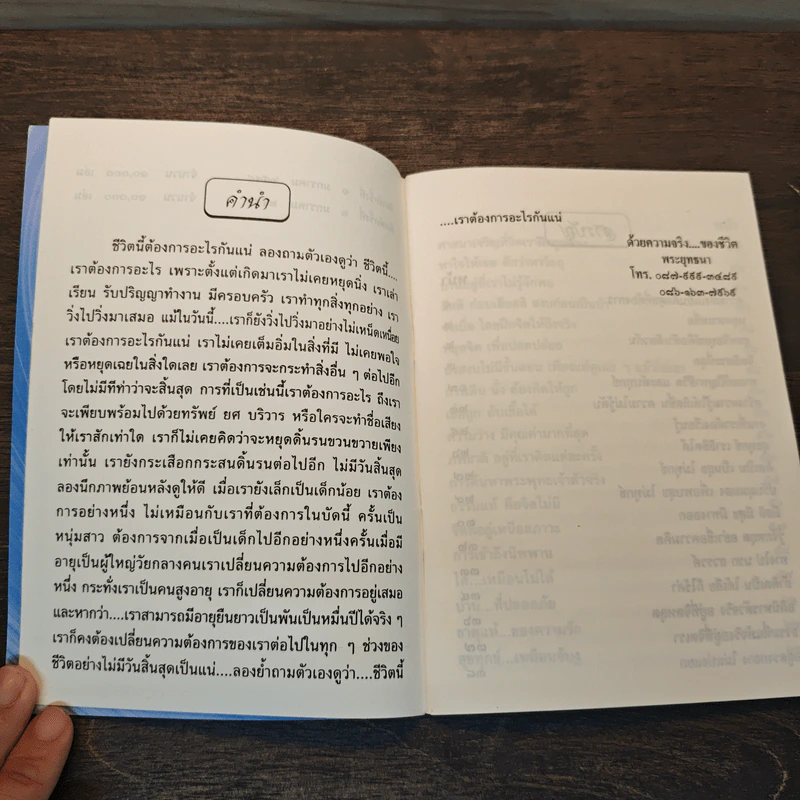 คำนำ
ชีวิตนี้ต้องการอะไรกันแน่ ลองถามตัวเองดูว่า ชีวิตนี้....
เราต้องการอะไร เพราะตั้งแต่เกิดมาเราไม่เคยหยุดนิ่ง เราเล่า
เรียน รับปริญญาทำงาน มีครอบครัว เราทำทุกสิ่งทุกอย่าง เรา
วิ่งไปวิ่งมาเสมอ แม้ในวันนี้....เราก็ยังวิ่งไปวิ่งมาอย่างไม่เหน็ดเหนื่อย
เราต้องการอะไรกันแน่ เราไม่เคยเต็มอิ่มในสิ่งที่มี ไม่เคยพอใจ
หรือหยุดเฉยในสิ่งใดเลย เราต้องการจะกระทำสิ่งอื่น ๆ ต่อไปอีก
โดยไม่มีทีท่าว่าจะสิ้นสุด การที่เป็นเช่นนี้เราต้องการอะไร ถึงเรา
จะเพียบพร้อมไปด้วยทรัพย์ ยศ บริวาร หรือใครจะทำชื่อเสียง
ให้เราสักเท่าใด เราก็ไม่เคยคิดว่าจะหยุดดิ้นรนขวนขวายเพียง
เท่านั้น เรายังกระเสือกกระสนดิ้นรนต่อไปอีก ไม่มีวันสิ้นสุด
ลองนึกภาพย้อนหลังดูให้ดี เมื่อเรายังเล็กเป็นเด็กน้อย เราต้อง
การอย่างหนึ่ง ไม่เหมือนกับเราที่ต้องการในบัดนี้ ครั้นเป็น
หนุ่มสาว ต้องการจากเมื่อเป็นเด็กไปอีกอย่างหนึ่งครั้นเมื่อมี
อายุเป็นผู้ใหญ่วัยกลางคนเราเปลี่ยนความต้องการไปอีกอย่าง
หนึ่ง กระทั่งเราเป็นคนสูงอายุ เราก็เปลี่ยนความต้องการอยู่เสมอ
และหากว่า....เราสามารถมีอายุยืนยาวเป็นพันเป็นหมื่นปีได้จริง ๆ
เราก็คงต้องเปลี่ยนความต้องการของเราต่อไปในทุก ๆ ช่วงของ
ชีวิตอย่างไม่มีวันสิ้นสุดเป็นแน่....ลองย้ำถามตัวเองดูว่า....ชีวิตนี้
....เราต้องการอะไรกันแน่
ด้วยความจริง....ของชีวิต
พระยุทธนา
โทร. ๐๘๗-๙๙๙-๓๔๘๙
๐๘๖-๑๖๓-๗๙๖๙